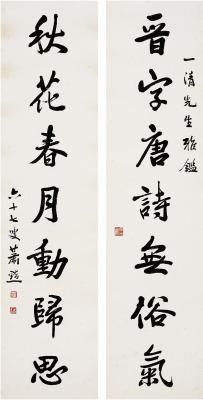 一清先生雅鑑
晋字唐詩無俗氣
秋花春月動歸思
六十七叟蕭瑄